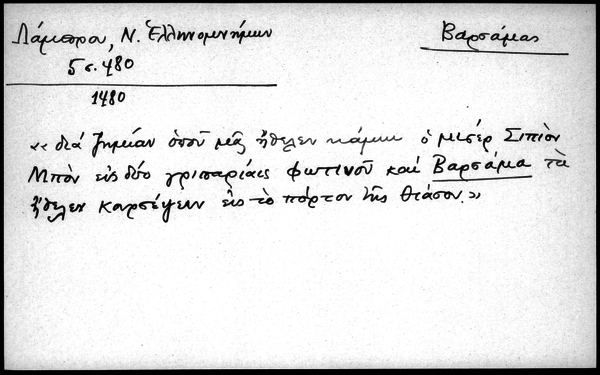 Λάμπρου, Ν. Ἑλληνομνήμων
Βαρσάμας
5 σ. 480
1480
«διά ζημίαν ὁποῦ μᾶς ἤθελεν κάμει ὁ μισέρ Σιπιὸν
Μπὸν εἰς δύο γριπαρίαις φωτινοῦ καί Βαρσάμα τὰ
ἤθελεν κουρσέψειν εἰς τὸ πόρτον τῆς Θιάσου.»